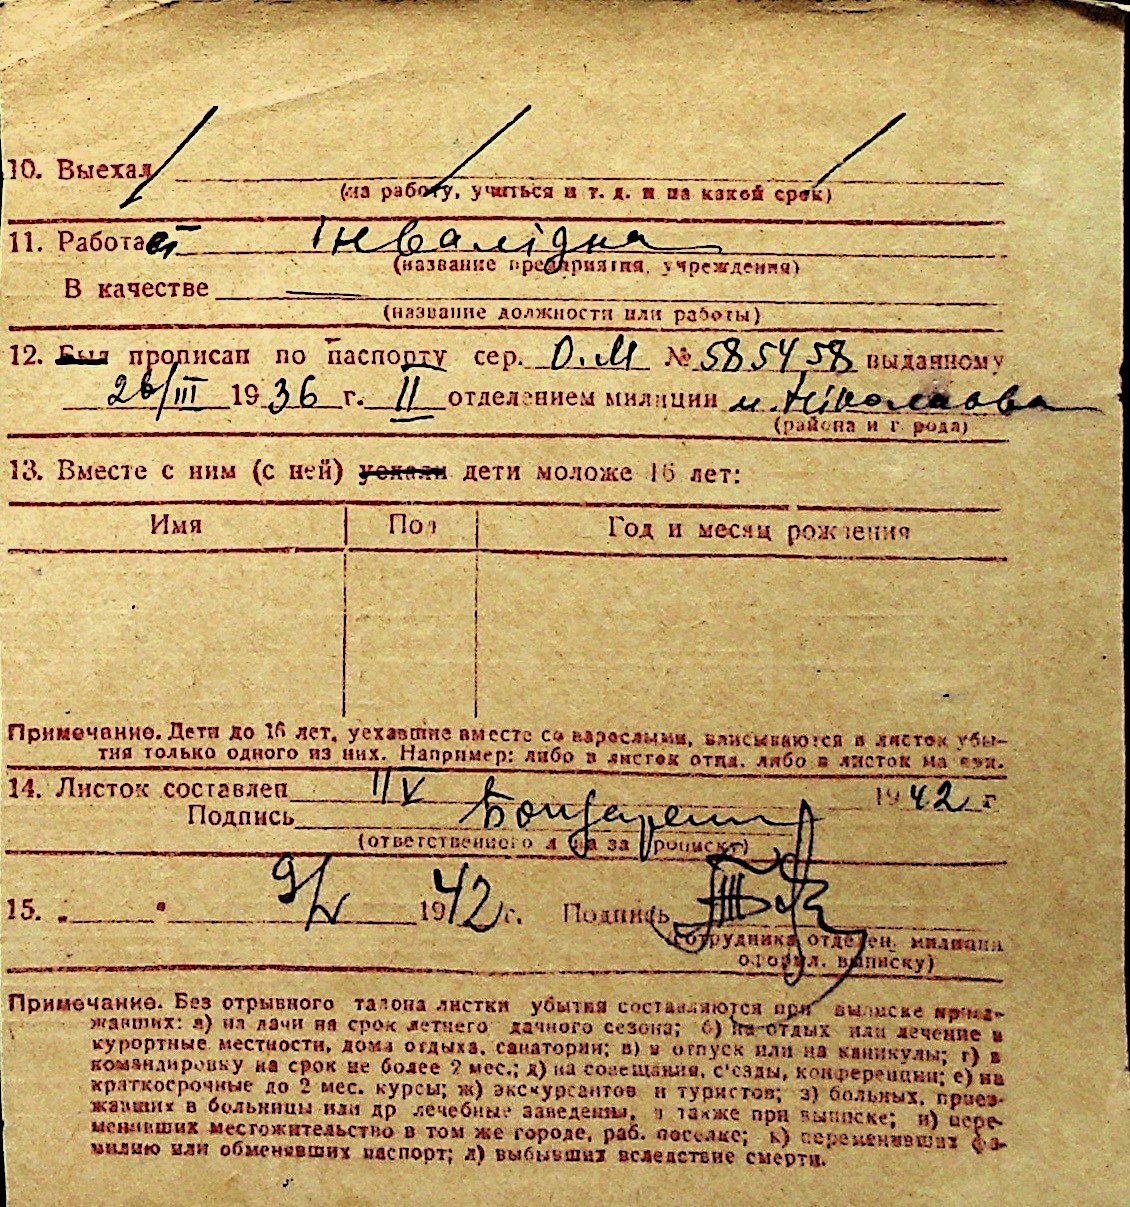 10. Выехал
(на работу, учиться и т. д. и на какой срок)
11. Работает Інвалідна
(название предприятия, учреждения)
В качестве —
(название должности или работы)
12. Был прописан по паспорту сер. О.М № 585458 выданному
26/III 1936 г. II отделением милиции м. Ніколаєва
(района и города)
13. Вместе с ним (с ней) уехали дети моложе 16 лет:
Имя Пол Год и месяц рождения
Примечание. Дети до 16 лет, уехавшие вместе со взрослыми, вписываются в листок убы-
тия только одного из них. Например: либо в листок отца, либо в листок матери.
14. Листок составлен II V 1942 г
Подпись Бондаренко
(ответственного лица за прописку)
15. „ " 9/V 1942 г. Подпись
(сотрудника отделен. милиции
оформл. выписку)
Примечание. Без отрывного талона листки убытия составляются при выписке приез-
жавших: а) на дачи на срок летнего дачного сезона; б) на отдых или лечение в
курортные местности, дома отдыха, санатории; в) в отпуск или на каникулы; г) в
командировку на срок не более 2 мес.; д) на совещания, с'езды, конференции; е) на
краткосрочные до 2 мес. курсы; ж) экскурсантов и туристов; з) больных, приез-
жавших в больницы или др лечебные заведения, а также при выписке; и) пере-
менивших местожительство в том же городе, раб. поселке; к) переменивших фа-
милию или обменявших паспорт; л) выбывших вследствие смерти.